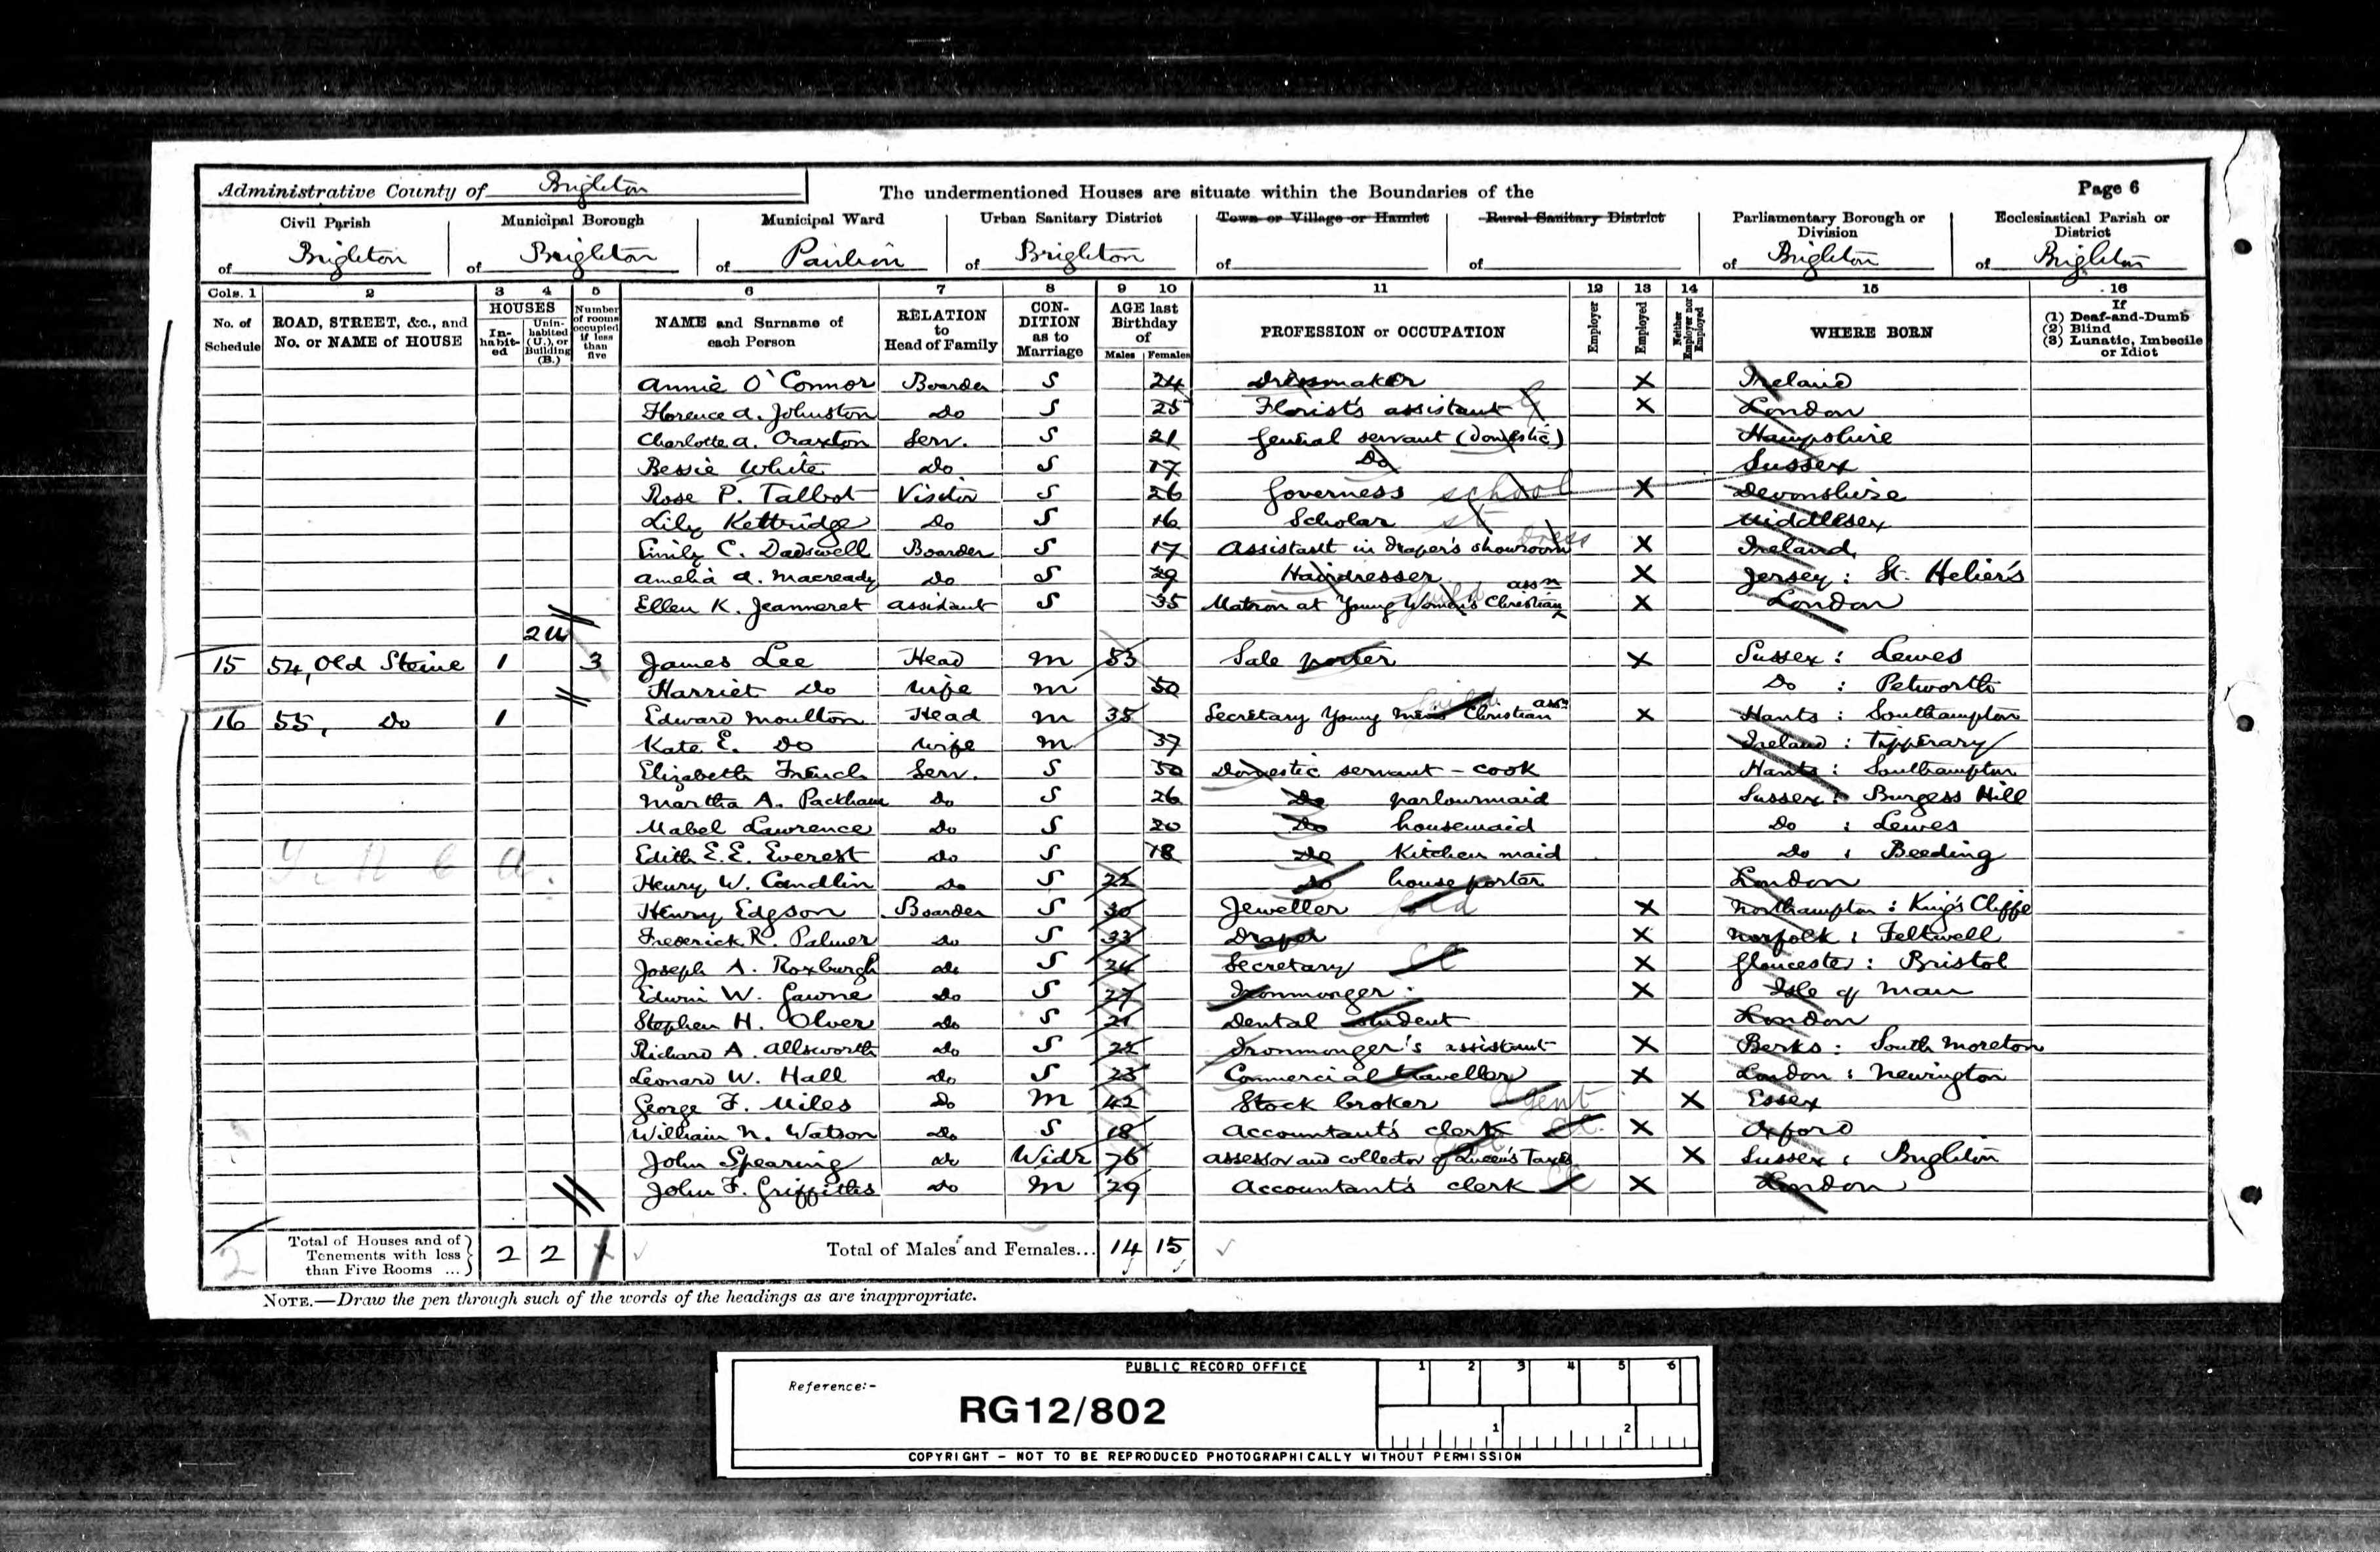 Administrative County of Brighton The undermentioned Houses are situate within the Boundaries of the Page 6
Civil Parish Municipal Borough Municipal Ward Urban Sanitary District Town or Village or Hamlet Rural Sanitary District Parliamentary Borough or Division Ecclesiastical Parish or District
of Brighton of Brighton of Pavilion of Brighton of of of Brighton of Brighton
Cols. 1 2 3 4 5 6 7 8 9 10 11 12 13 14 15 16
No. of Schedule ROAD, STREET, &c., and No. or NAME of HOUSE HOUSES In-habit-ed Unin-habited (U.), or Building (B.) Number of rooms occupied if less than five NAME and Surname of each Person RELATION to Head of Family CON-DITION as to Marriage AGE last Birthday of Males Females PROFESSION or OCCUPATION Employer Employed Neither Employer nor Employed WHERE BORN If (1) Deaf-and-Dumb (2) Blind (3) Lunatic, Imbecile or Idiot
Annie O'Connor Boarder S 24 Dressmaker X Ireland
Florence A. Johnston Do S 25 Florist's assistant X London
Charlotte A. Craxton Serv. S 21 General servant (Domestic) Hampshire
Bessie White Do S 17 Do Sussex
Rose P. Talbot Visitor S 26 Governess school X Devonshire
Lily Kettridge Do S 16 Scholar st Middlesex
Emily C. Dadswell Boarder S 17 Assistant in Draper's showroom Dress X Ireland
Amelia A. Macready Do S 29 Hairdresser X Jersey : St. Helier's
Ellen K. Jeanneret assistant S 35 Matron at Young Women's Christian assn X London
2U
15 54, Old Steine 1 3 James Lee Head M 53 Sale porter X Sussex : Lewes
Harriet Do Wife M 50 Do : Petworth
16 55, Do 1 Edward Moulton Head M 35 Secretary Young Men's Christian assn X Hants : Southampton
Kate E. Do Wife M 37 Ireland : Tipperary
Elizabeth French Serv. S 50 Domestic servant - cook Hants : Southampton
Martha A. Packham Do S 26 Do parlourmaid Sussex : Burgess Hill
Mabel Lawrence Do S 20 Do housemaid Do : Lewes
Edith E.E. Everest Do S 18 Do Kitchen maid Do : Beeding
Henry W. Candlin Do S 22 Do house porter London
Henry Edgson Boarder S 30 Jeweller X Northampton : King's Cliffe
Frederick R. Palmer Do S 33 Draper X Norfolk : Feltwell
Joseph A. Roxburgh Do S 24 Secretary Cl X Gloucester : Bristol
Edwin W. Gawne Do S 27 Ironmonger X Isle of Man
Stephen H. Olver Do S 21 Dental student London
Richard A. Allsworth Do S 22 Ironmonger's assistant X Berks : South Moreton
Leonard W. Hall Do S 23 Commercial traveller X London : Newington
George F. Miles Do M 42 Stock broker Agent X Essex
William N. Watson Do S 18 Accountant's clerk Cl. X Oxford
John Spearing Do Widr 76 Assessor and collector of Queen's Taxes X Sussex : Brighton
John F. Griffiths Do M 29 Accountant's clerk Cl X London
Total of Houses and of Tenements with less than Five Rooms ... 2 2 1 Total of Males and Females... 14 15
NOTE.—Draw the pen through such of the words of the headings as are inappropriate.
PUBLIC RECORD OFFICE 1 2 3 4 5 6
Reference:-
RG12/802
1 2
COPYRIGHT - NOT TO BE REPRODUCED PHOTOGRAPHICALLY WITHOUT PERMISSION